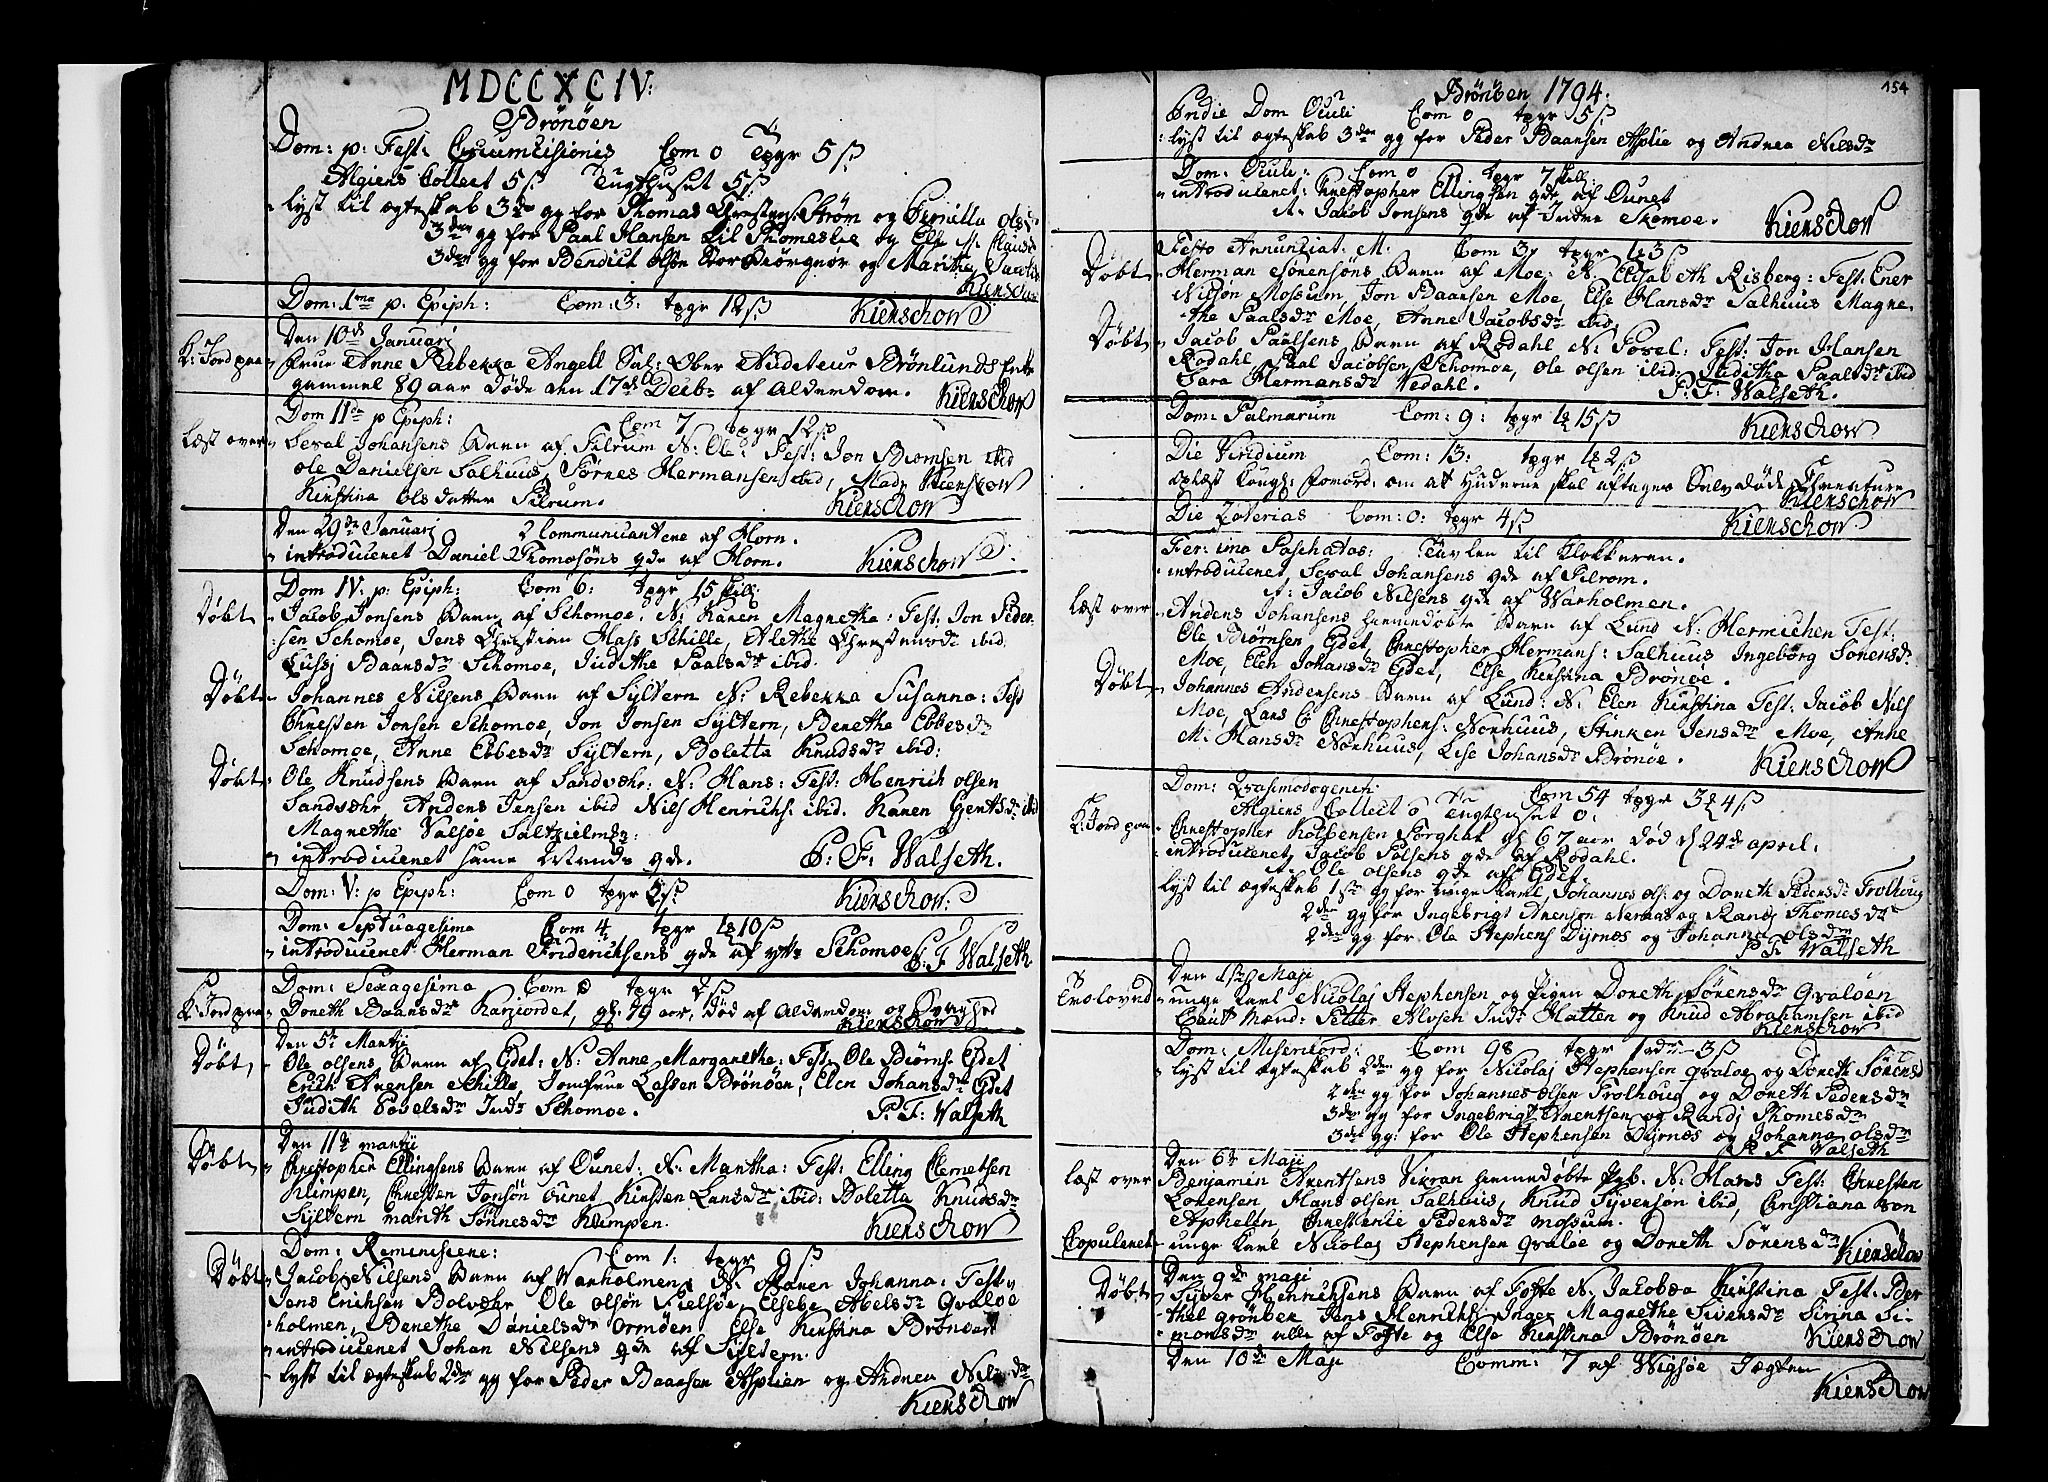 MDCCXCIV:
Brönöen
Dom: p: Fest: Circumcisionis Com 0 Tpgr 5 ß
Algiers Collect 5 ß. Tugthuset 5 ß.
lyst til ægteskab 3de gg for Thomas Christens: Ström og Pernilla Ols
3den gg for Paul Hansen til Thomeslie og Else M. Claus
3den gg for Bendict Olsön Torbörgnör og Marithe Jacobs
Kierschow
Dom: 1ma p: Epiph: Com: 3: tpgr 12 ß Kierschow
Den 10de Januarj
K: Jord paa Frue Anne Rebekka Angell Sal: Ober Auditeur Brönlunds Enke
gammel 89 aar döde den 17de Decbr af Alderdom. Kierschow
Dom 11da p Epiph: Com 7 tpgr 12 ß
Læst over Seval Johansens Barn af Tilrum N: Ole: Fest: Jon Biörnsen ibid
Ole Danielsen Salhuus, Törnes Hermansen ibid, Mad. Kierschow
Kirstina Olsdatter Tilrum. Kierschow
Den 29de Januarj 2 Communicantere af Horn.
introduceret Daniel Thomesöns qde af Horn. Kierschow
Dom IV: p: Epiph: Com 6: tpgr 15 skill:
Döbt Jacob Jonsens Barn af Schomoe: N: Karen Magnetha: Fest: Jon Peder-
sen Schomoe, Jens Christian Hass Schille, Alethe Chrestensdr ibid
Lussj Baansdr Schomoe, Judithe Paalsdr ibid.
Döbt Johannes Nilsens Barn af Syltern N: Rebekka Susanna: Fest
Chresten Jonsen Schomoe, Jon Jonsen Syltern, Berethe Ebbesdr
Schomoe, Anne Ebbesdr Syltern, Boletta Knudsdr ibid:
Döbt Ole Knudsens Barn af Sandvær: N: Hans: Fest: Henrich Olsen
Sandvær Anders Jensen ibid Nils Henrichs: ibid. Karen Gjertsdr ibid
Magnethe Valsöe
introduceret samme qde. P: F: Walseth.
Dom: V: p Epiph: Com 0 tpgr 5 ß Kierschow.
Dom: Septuagesima Com 4 tpgr 10 ß
introduceret Herman Friderichsens qde af ytte Schomoe P: F Walseth
Dom: Sexagesima Com 0 tpgr 2 ß
K: Jord paa Doreth Baansdr gl: 79 aar, Död af Alderdom og Svaghed
Kierschow
Den 5te Martij
Döbt Ole Olsens Barn af Eidet: N: Anne Margarethe: Fest: Ole Biörns: Eidet
Erich Arensen Schille, Jomfrue Lassen Brönöen, Elen Johansdr Eidet
Judith Povelsdr Indr Schomoe. P: F: Walseth
Den 11te martij
Döbt Christopher Ellingsens Barn af Ounet: N: Martha: Fest: Elling Clemetsen
Klimpen, Chresten Jonsön ounet Kirsten Larsdr ibid: Boletta Knudsdr
Syltern marith Sönnesdr Klimpen. Kierschow
Dom: Reminiscere: Com 1: tpgr 9 ß
Döbt Jacob Nilsens Barn af Varholmen N: Maren Johanna: Fest:
Jens Erichsen Bolvær, Ole Olsön Fielsöe, Elsebe Abelsdr Qvaloe
holmen, Berethe Danielsdr Ormöen, Else Kirstina Brönöen
introduceret Johan Nilsens qde af Syltern.
lyst til ægteskab 2den gg for Peder Baansen Asplien og Andrea Nilsdr
Kierschow
Brönöen 1794. 154
Fridie Dom Oculi Com 0 tpgr 5 ß
lyst til ægteskab 3den gg for Peder Baansen Asplie og Andrea Nilsdr
Dom: Oculi: Com 0 tpgr 7 skill.
introduceret: Christopher Ellingsen qde af Ounet
A. Jacob Jonsens qde af Indre Skomoe. Kierschow
Festo Annunciat: M. Com 3, tpgr 3 ß
Döbt Herman Sörensöns Barn af Moe: N: Elisabeth Risberg: Fest: Ener
Nilsön Mossum, Jon Baansen Moe, Else Hansdr Salhuus Magne-
the Paalsdr Moe, Anne Jacobsdr ibid
Döbt Jacob Paalsens Barn af Rodahl N: Povel: Fest: Jon Hansen
Rodahl, Paal Jacobsen Schomoe, Ole Olsen ibid: Juditha Paalsdr ibid
Sara Hermansdr Nedahl. P: F: Walseth.
Dom: Palmarum Com: 9: tpgr 15 ß Kierschow
Die Viridium Com: 13: tpgr 2 ß
oplæst Kongl: Forord: om at Huderne skal aftages Selvdöde Creature
Kierschow
Die Com: 0: tpgr 4 ß Kierschow
Fer: ima Paschatos: Tavlen til Klokkeren.
introduceret, Seval Johansens qde af Tilrom.
A: Jacob Nilsens qde af Warholmen.
Læst over Anders Johansens hiemdöbte Barn af Lund N: Hermichen Fest:
Ole Biörnsen Eidet, Christopher Hermans: Salhuus Ingebörg Sörensdr
Moe, Elen Johansdr Eidet, Else Kirstina Brönöe.
Döbt Johannes Andersens Barn af Lund: N: Elen Kirstina Fest: Jacob Nils
Moe, Lars C Christophers: Norhuus, Stinken Jensdr Moe, Anne
M: Hansdr Norhuus, Lise Johansdr Brönöe. Kierschow
Dom: Qvasimodogeniti: Com 54 tpgr 3 4 ß
Algiers Collect 0 Tugthuset 0:
K: Jord paa Christopher Kolbensen Torghat gl 67 aar död d 24de april.
introduceret, Jacob Polsens qde af Rodahl.
A: Ole Olsens qde af Eidet
lyst til ægteskab 1ste gg for unge Karl Johannes Ols: og Doreth Pedersdr Trolhoug
2den gg for Ingebrigt Arensön og Randj Thomesdr
2den gg for Ole Stephens Dyrnes og Johanna Olsdr
P F Walseth
Den 1ste Maji
Trolovud unge Karl Nicolaj Stephensen og Pigen Doreth Sörensdr Qvaloen
Caut Mænd: Petter Alvsen Indr Hatten og Knud Abrahamsen ibid
Kierschow
Dom: Misericord: Com 98 tpgr 1 rdr - 3 ß
lyst til ægteskab 2den gg for Nicolaj Stephensen qvaloe og Doreth Sörensd
2den gg for Johannes Olsen Trolhoug og Doreth Pedersdr
3den gg for Ingebrigt Arentsen og Randj Thomesdr
3die gg: for Ole Stephensen Dyrnes og Johanna Olsdr
P F Walseth
Den 6te Maji
læst over Benjamin Arentsens Vikran hiemdöbte Pgb. N: Hans Fest: Chresten
Lorensen Hans Olsen Salhuus, Knud Syversön ibid, Christiana von
Aphelen, Chrestentie Pedersdr mossum.
Copuleret unge Karl Nicolaj Stephensen Qvalöe og Doreth Sörensdr Kierschow
Den 9de maji
Döbt Syver Henrichsens Barn af Tofte N: Jacobæa Kirstina Fest: Ber
thel grönbek Jens Henrichs: Inger Magnethe Sivertsdr Sirina Si-
monsdr alle af Tofte og Else Kirstina Brönöen Kierschow
Den 10de Maji Comm: 7 af Wigsöe Jægten
Kierschow